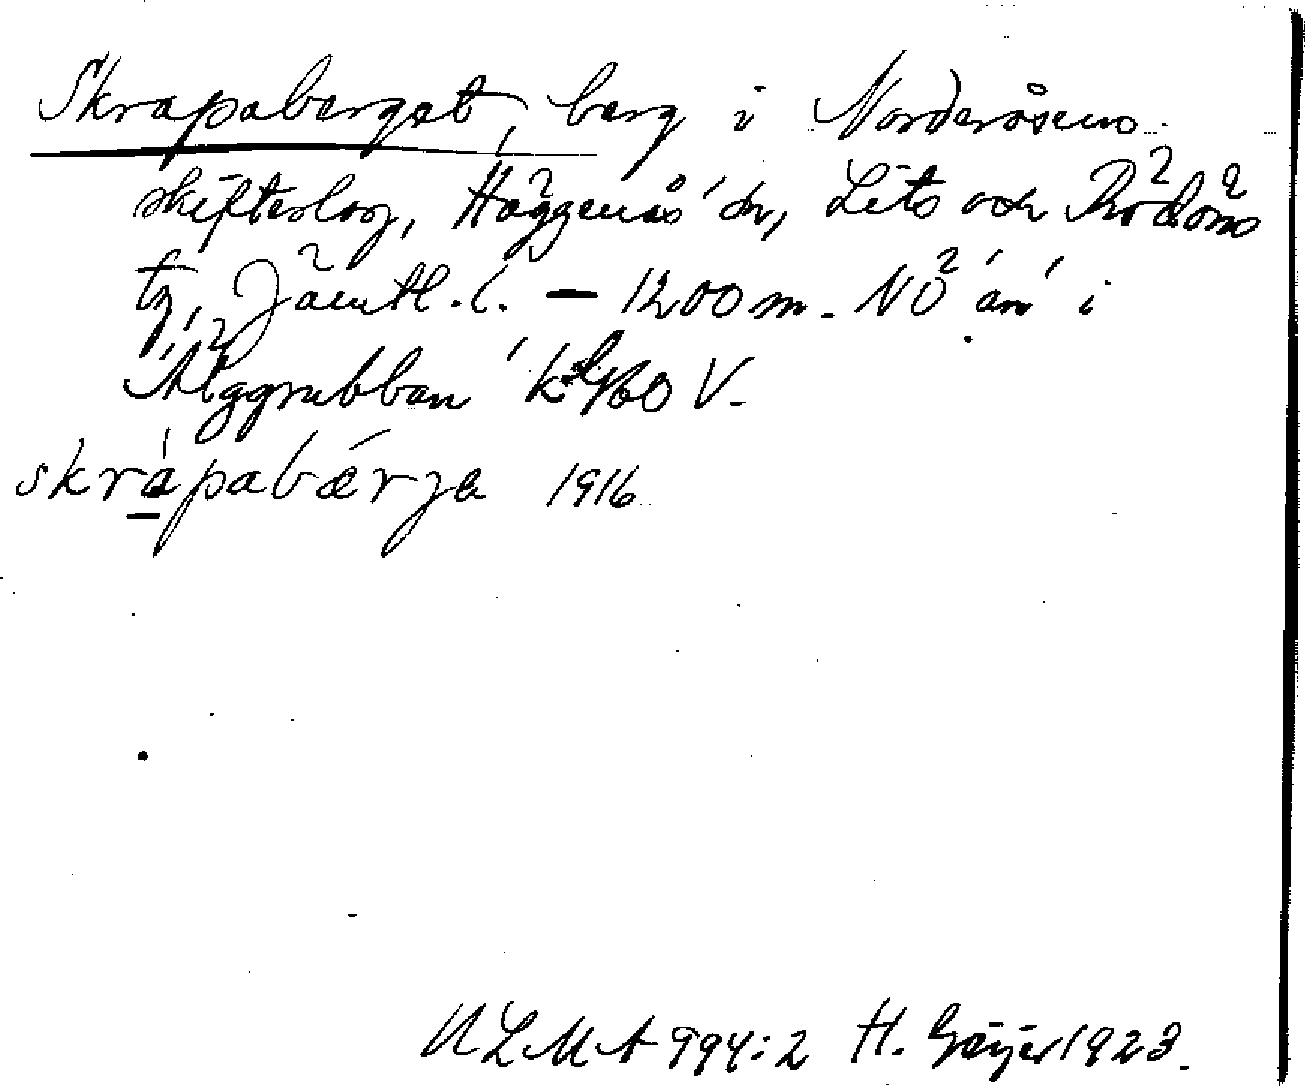 Skrapaberget, berg i Norderåsens
skifteslag, Häggenås' sn, Lits och Rödöns
tg, Jämtl. l. — 1200 m. NO 'än' i
'Älggrubban' k. bl. 60 V.
skrápabǽrja 1916
ULMA 994:2 H. Geijer 1923.